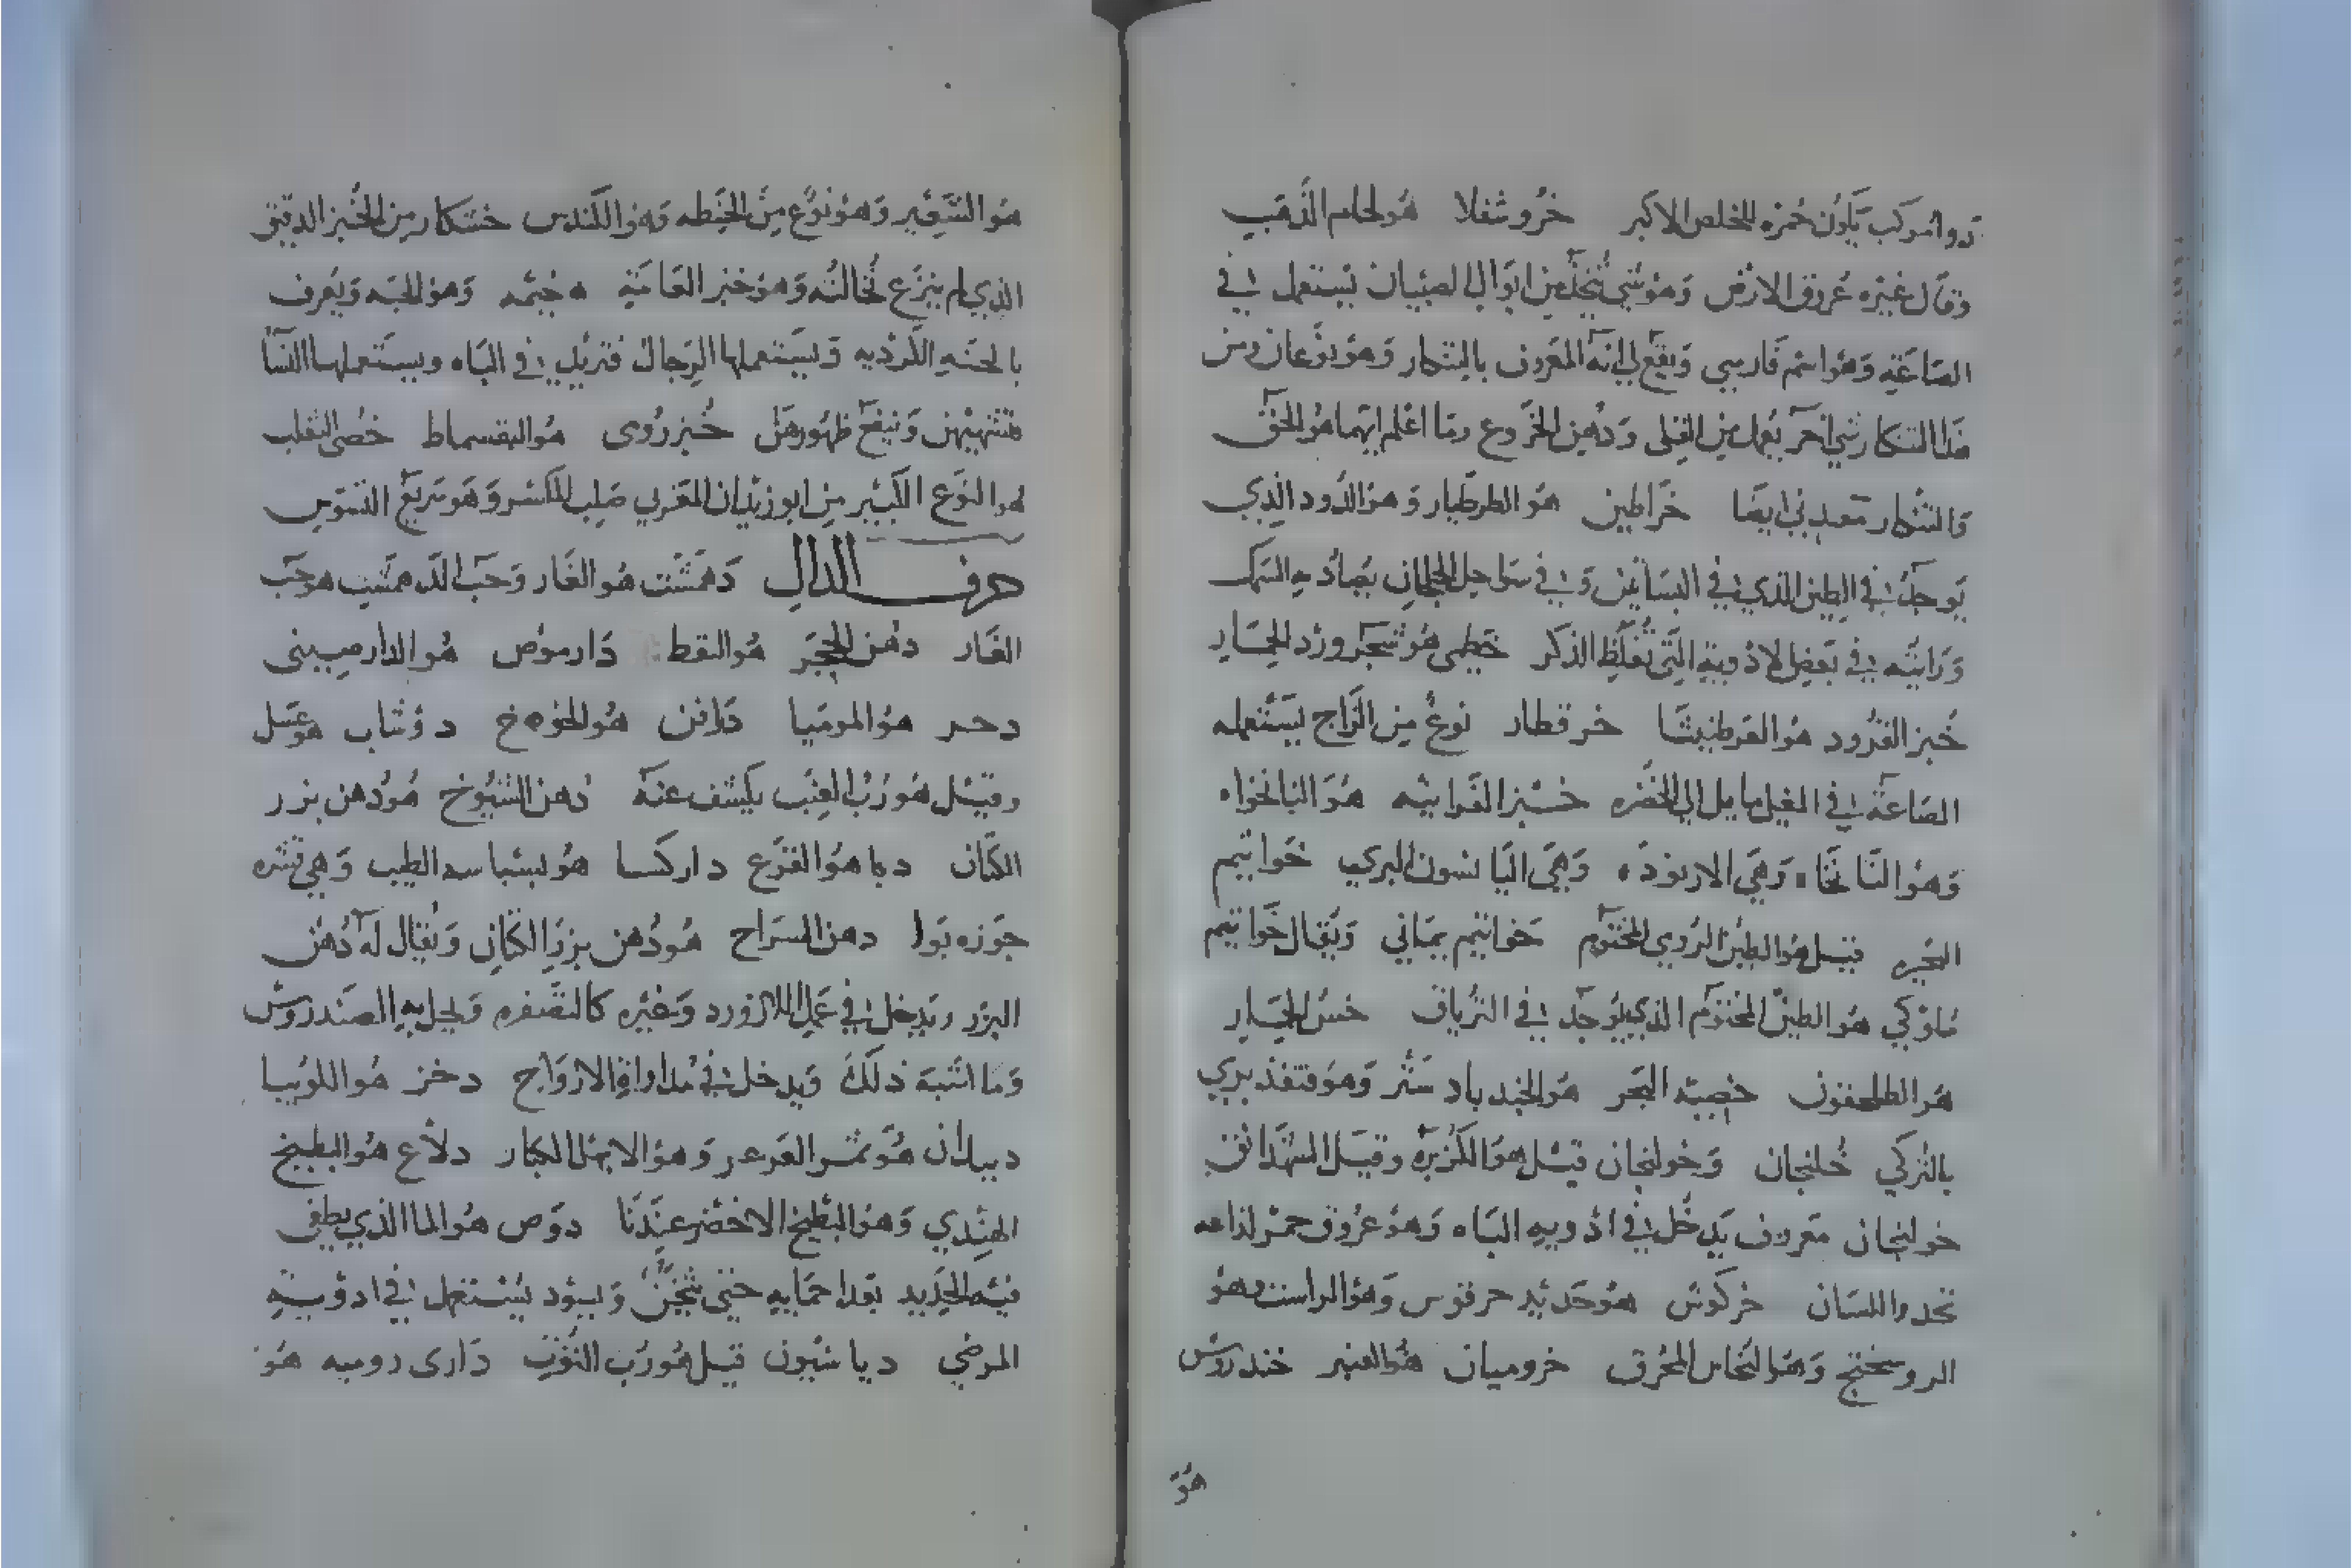 دواء مركب يكون حمزه المخلص الاكبر خروشفلا هو لحام الذهب
وقال غيره عروق الارض وهو شي يتخذ من ابوال الصبيان يستعمل في
الصاغة وهو اسم فارسي ويقع لي انه المعروف بالتنكار وهو نوعان ومن
هذا التنكار شي اخر يعمل من القلى ودهن الخروع وما اعلم ايهما هو الحق
والتنكار معدني ايضا خراطين هو الطرطيار وهو الدود الذي
يوجد في الطين الذي في البساتين وفي سواحل الخلجان يصاد به السمك
ورايته في بعض الادوية التي تغلظ الذكر خطمى هو شجر ورد الحمار
خبز القرود هو القرطنيثا خرقطار نوع من الزاج يستعمله
الصاغة في الغيل مايل الى الخضره خبز الغرابيه هو النانخواه
وهو النانخا وهي الارنوده وهي اليانسون البري خواتيم
البحيره قيل هو الطين الرومي المختوم خواتيم يماني ويقال خواتيم
ملوكي هو الطين المختوم الذي يوجد في الترياق خس الحمار
هو الطلحفون خصيته البحر هو الجندبادستر وهو قنفذ بري
بالتركي خلنجان وخولنجان قيل هو الكزبره وقيل الشهدانق
خولنجان معروف يدخل في ادويه الباه وهو عروق حمر لذاعه
تحدوا اللسان خركوش هو حديد حرقوس وهو الراست وهو
الروسختج وهو النحاس المحرق خروميان هو العنبر خندروس
هو
هو الشعير وهو نوع من الحنطه وهو الكندس خشكار من الخبز الدقيق
الذي لم ينزع نخالته وهو خبز العامة خيثمه وهو الحبه ويعرف
بالحنه الكرديه ويستعملها الرجال فتزيد في الباه ويستعملها النسا
فتشهيهن وينفع ظهورهن خبز رومى هو البقسماط خصى الثعلب
هو النوع الكبير من ابوزيدان المغربي صلب المكسر وهو سريع التسوس
حرف الدال دهمشت هو الغار وحب الدهمشت هو حب
الغار دهن الحجر هو النفط دارموص هو الدارصيني
دحر هو الموميا دافن هو الخوخ دوشاب هو عسل
وقيل هو رب العنب يكشف عنه دهن الشيوخ هو دهن بزر
الكتان دبا هو القرع داركسا هو بسباسه الطيب وهي قشره
جوزه بوا دهن السراج هو دهن بزر الكتان ويقال له دهن
البزر ويدخل في عمل اللازورد وغيره كالتصفره ويحل به الصندروس
وما اشبه ذلك ويدخل في مداواة الارواح دخز هو اللوبيا
ديبدان هو ثمر العرعر وهو الابهل الكبار دلاع هو البطيخ
الهندي وهو البطيخ الاخضر عندنا دوص هو الما الذي يطفى
فيه الحديد بعد احمايه حتى يثخن ويسود يستعمل في ادويه
المرضي دياشبون قيل هو رب التوت دارى روميه هو